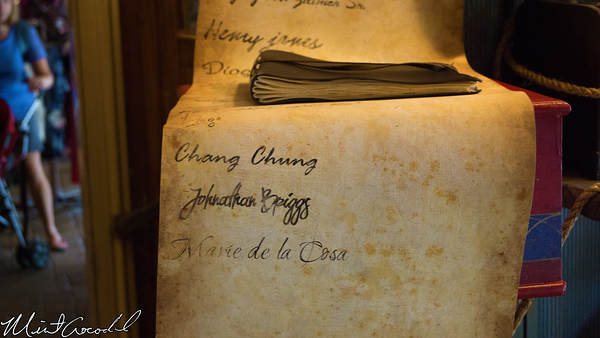 Henry janes
Diog
Chang Chung
Johnathan Briggs
Marie de la Cosa
Mint Crocodile